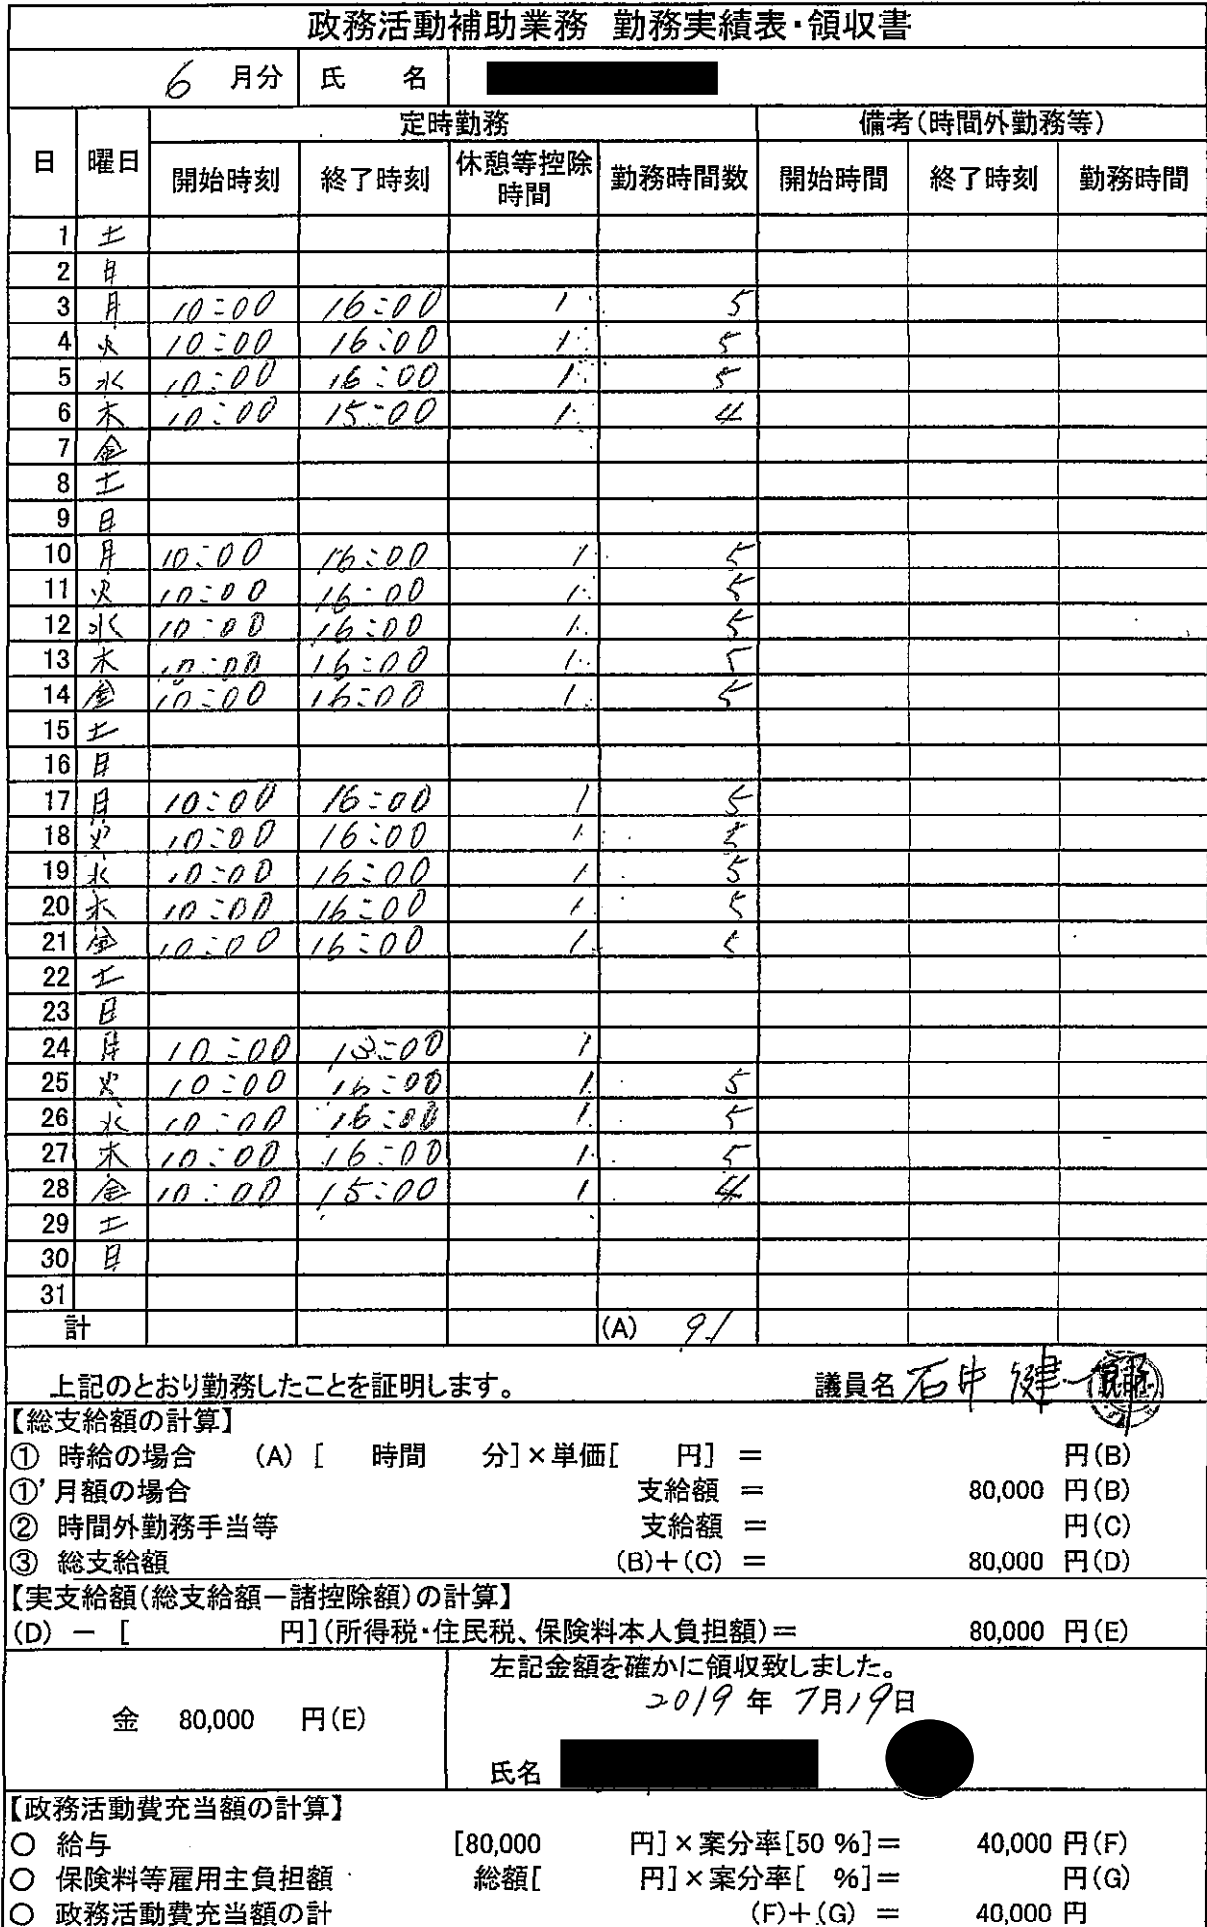 政務活動補助業務 勤務実績表・領収書
6 月分 氏 名
日 曜日 定時勤務 備考(時間外勤務等)
開始時刻 終了時刻 休憩等控除時間 勤務時間数 開始時間 終了時刻 勤務時間
1 土
2 日
3 月 10:00 16:00 1 5
4 火 10:00 16:00 1 5
5 水 10:00 16:00 1 5
6 木 10:00 15:00 1 4
7 金
8 土
9 日
10 月 10:00 16:00 1 5
11 火 10:00 16:00 1 5
12 水 10:00 16:00 1 5
13 木 10:00 16:00 1 5
14 金 10:00 16:00 1 5
15 土
16 日
17 月 10:00 16:00 1 5
18 火 10:00 16:00 1 5
19 水 10:00 16:00 1 5
20 木 10:00 16:00 1 5
21 金 10:00 16:00 1 5
22 土
23 日
24 月 10:00 13:00 1
25 火 10:00 16:00 1 5
26 水 10:00 16:00 1 5
27 木 10:00 16:00 1 5
28 金 10:00 15:00 1 4
29 土
30 日
31
計 (A) 91
上記のとおり勤務したことを証明します。 議員名 石井 健一郎
【総支給額の計算】
① 時給の場合 (A) [ 時間 分]×単価[ 円] = 円(B)
①' 月額の場合 支給額 = 80,000 円(B)
② 時間外勤務手当等 支給額 = 円(C)
③ 総支給額 (B)+(C) = 80,000 円(D)
【実支給額(総支給額-諸控除額)の計算】
(D) - [ 円](所得税・住民税、保険料本人負担額)= 80,000 円(E)
左記金額を確かに領収致しました。
2019 年 7月19日
金 80,000 円(E)
氏名
【政務活動費充当額の計算】
○ 給与 [80,000 円]×案分率[50 %]= 40,000 円(F)
○ 保険料等雇用主負担額 総額[ 円]×案分率[ %]= 円(G)
○ 政務活動費充当額の計 (F)+(G) = 40,000 円